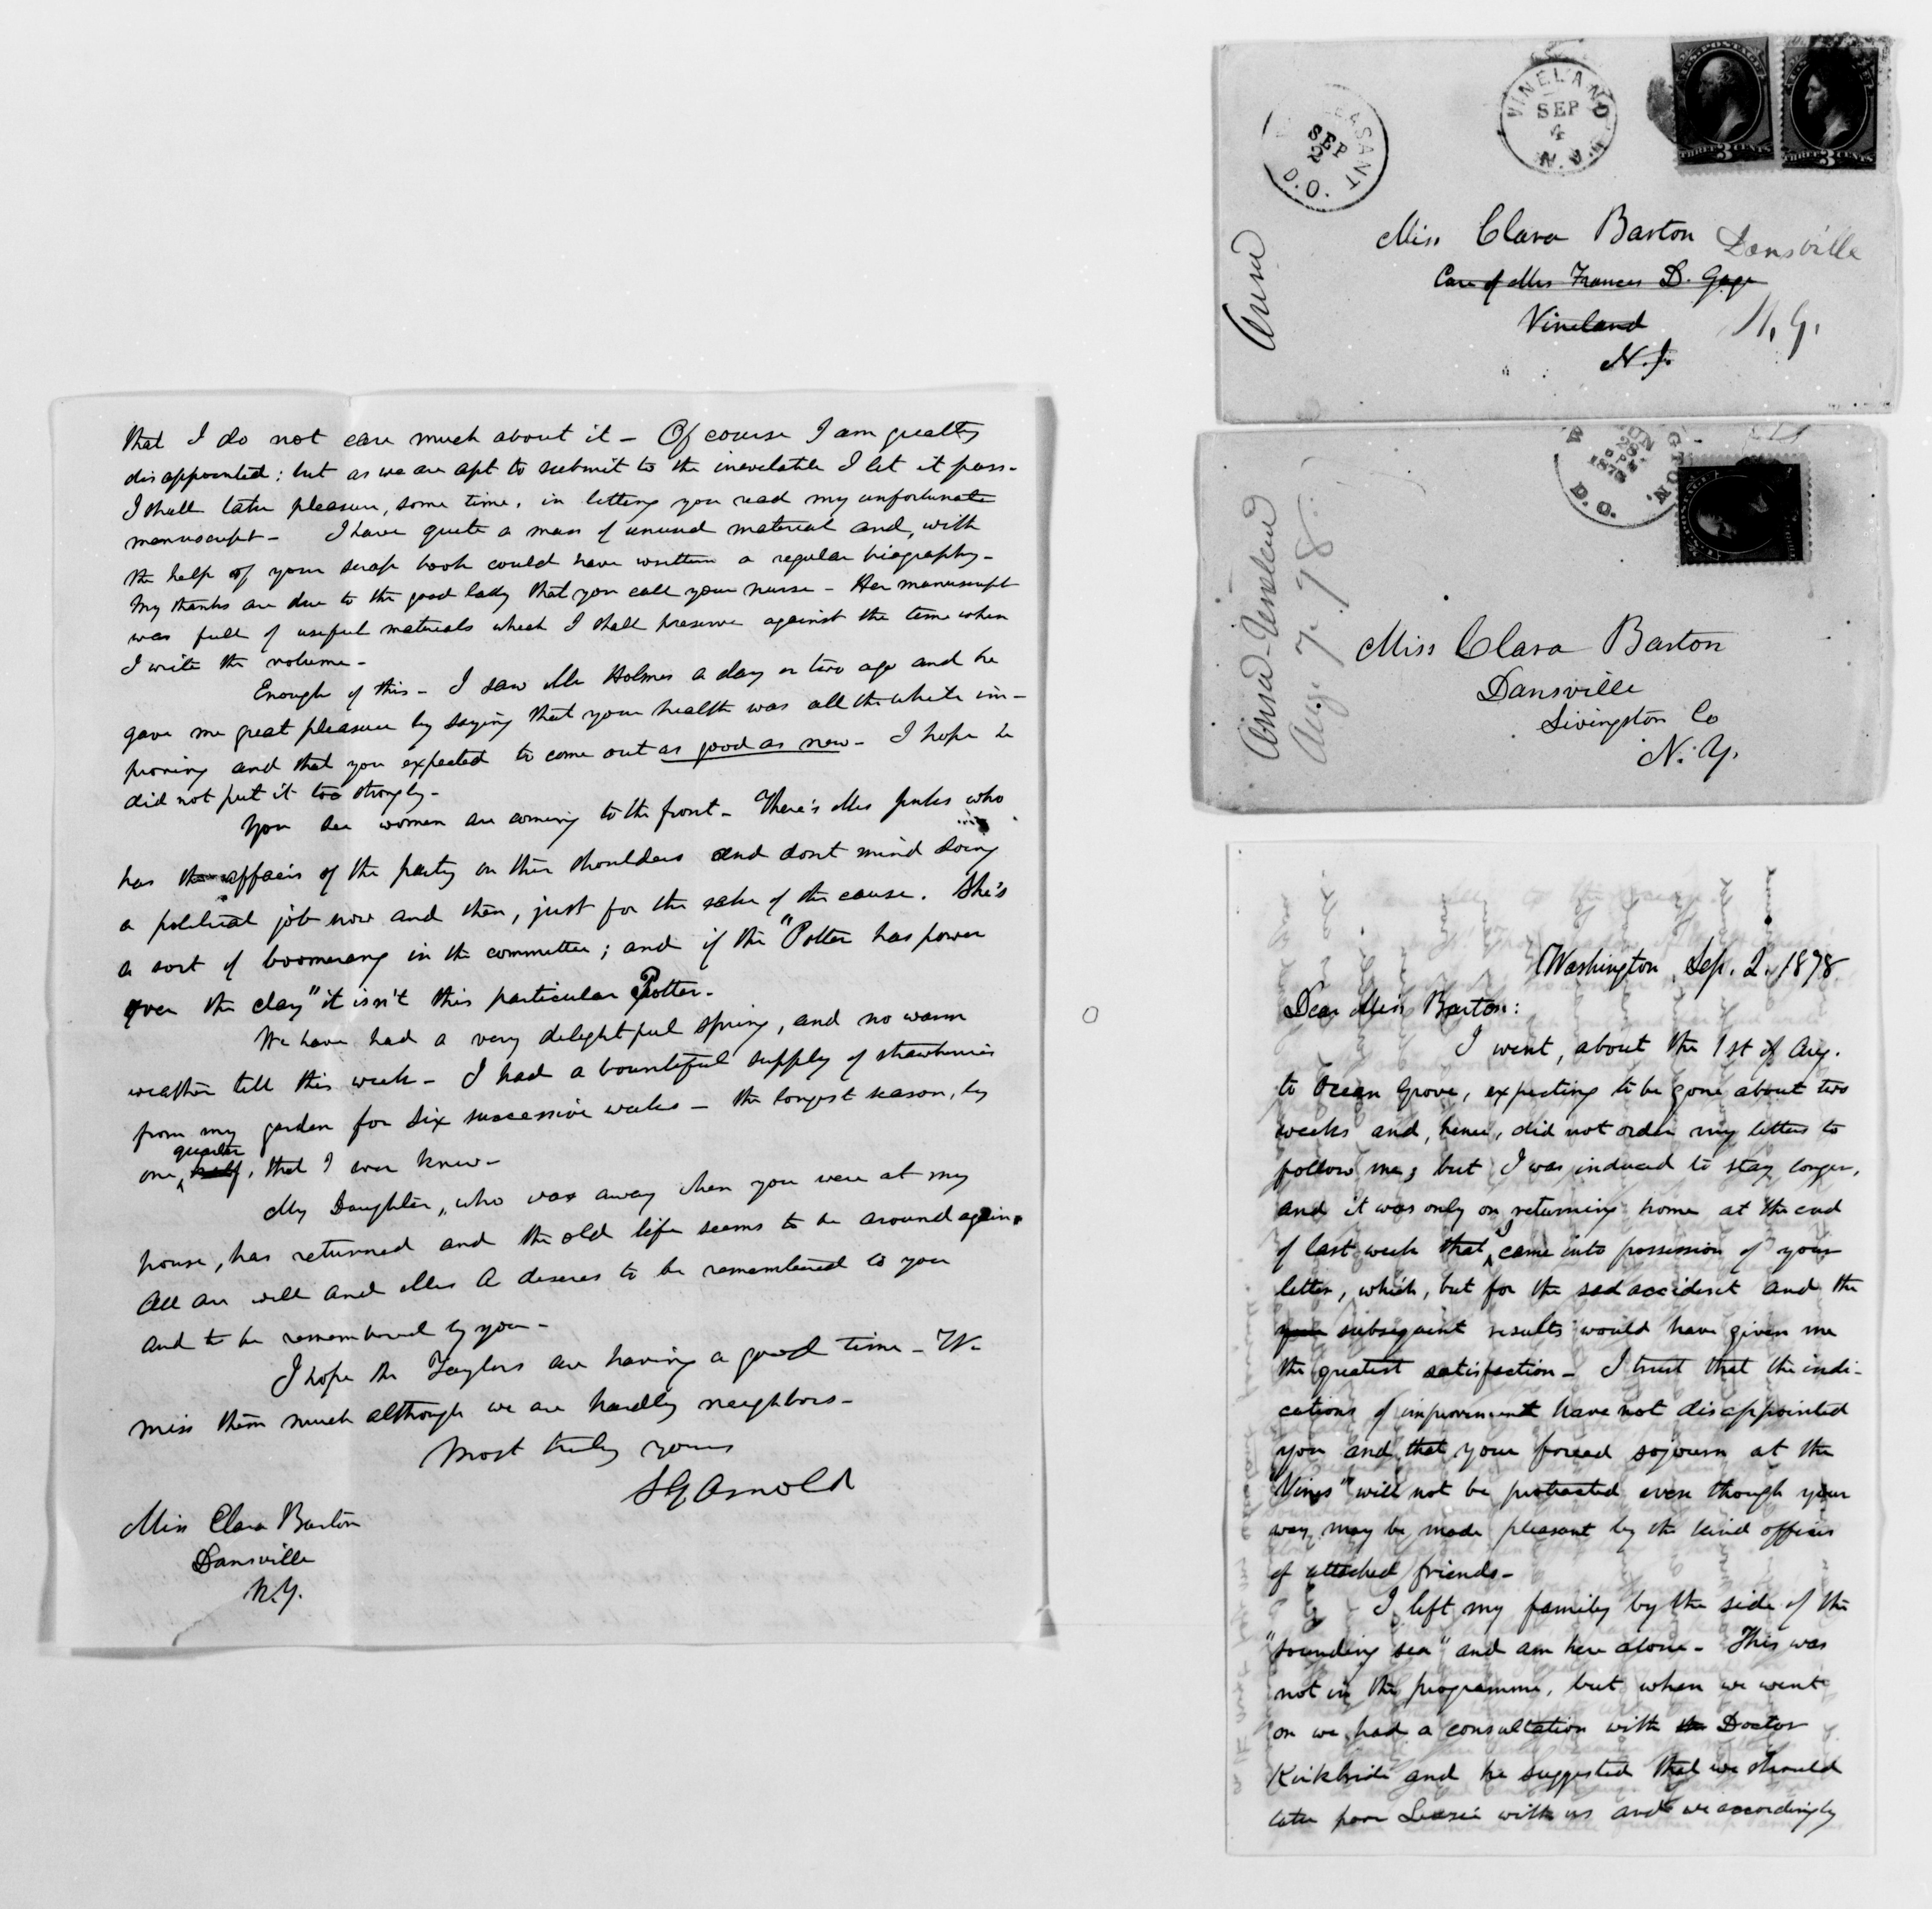 that I do not care much about it - Of course I am greatly
disappointed: but as we are apt to submit to the inevitable I let it pass-
I shall take pleasure, some time, in letting you read my unfortunate
manuscript - I have quite a mass of unused material and, with
the help of your scrap book could have written a regular biography-
My thanks are due to the good lady that you call your nurse - Her manuscript
was full of useful materials which I shall preserve against the time when
I write the volume-
Enough of this - I saw Mr Holmes a day or two ago and he
gave me great pleasure by saying that your health was all the while im-
proving and that you expected to come out as good as new - I hope he
did not put it too strongly-
You see women are coming to the front - There's Mrs Jenks who
has the affairs of the party on their shoulders and dont mind doing
a political job now and then, just for the sake of the cause. She's
a sort of boomerang in the committee; and if the "Potter has power
over the clay" it isn't this particular Potter-
We have had a very delightful spring, and no warm
weather till this week - I had a bountiful supply of strawberries
from my garden for six successive weeks - the longest season, by
one quarter half, that I ever knew-
My Daughter, who was away when you were at my
house, has returned and the old life seems to be around again.
All are well and Mrs A desires to be remembered to you
and to be remembered by you-
I hope the Taylors are having a good time - We
miss them much although we are hardly neighbors-
Most truly yours
S G Arnold
Miss Clara Barton
Dansville
N.Y.
VINELAND N.J.
SEP
4
SEP
2
D.C.
THREE 3 CENTS
THREE 3 CENTS
Miss Clara Barton Dansville
Care of Mrs Frances D. Gage
Vineland N.Y.
N.J.
D.C.
Aug. 7. 78.
Miss Clara Barton
Dansville
Livingston Co
N.Y.
Washington, Sep. 2. 1878
Dear Miss Barton:
I went, about the 1st of Aug.
to Ocean Grove, expecting to be gone about two
weeks and, hence, did not order my letters to
follow me; but I was induced to stay longer,
and it was only on returning home at the end
of last week that I came into possession of your
letter, which, but for the sad accident and the
your subsequent results would have given me
the greatest satisfaction - I trust that the indi-
cations of improvement have not disappointed
you and that your forced sojourn at the
"Vines" will not be protracted even though your
way may be made pleasant by the kind offices
of attached friends-
I left my family by the side of the
"sounding sea" and am here alone - This was
not in the programme, but when we went
on we had a consultation with the Doctor
Kirkbride and he suggested that we should
take poor Lizzie with us and we accordingly